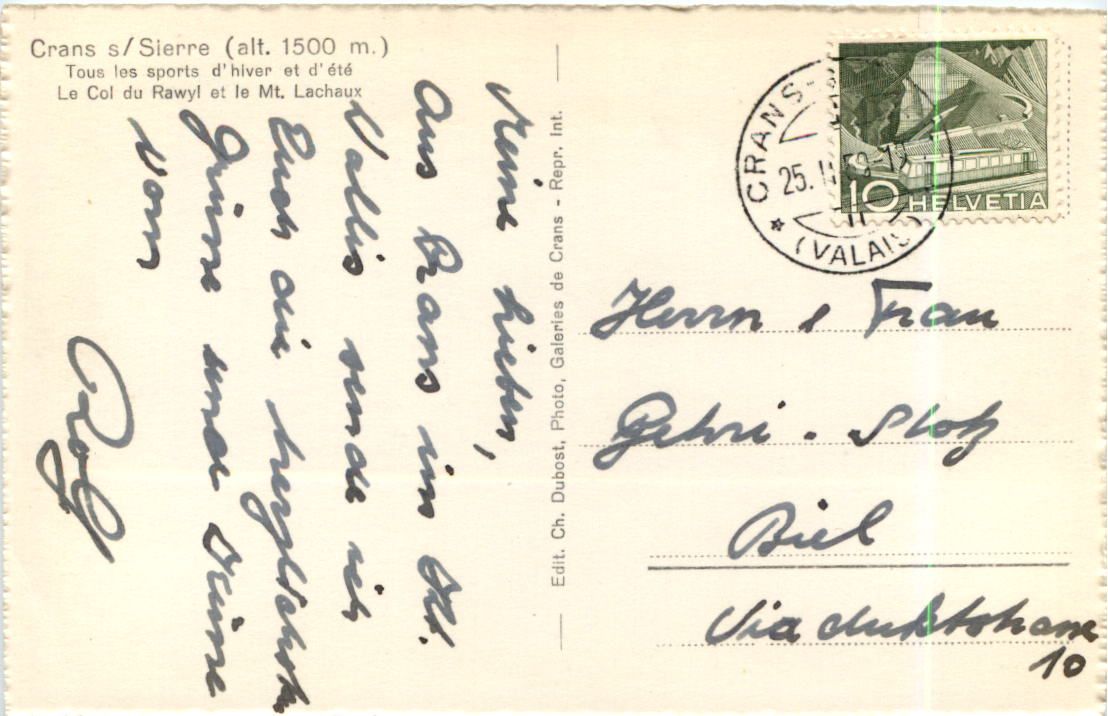 Crans s/Sierre (alt. 1500 m.)
Tous les sports d'hiver et d'été
Le Col du Rawyl et le Mt. Lachaux
Meine Lieben,
Aus Crans im Kt.
Wallis sende ich
Euch die herzlichsten
Grüsse und Deinne
vom
Rolf
Edit. Ch. Dubost, Photo, Galeries de Crans - Repr. Int.
CRANS-
25.
(VALAIS)
10 HELVETIA
Herrn & Frau
Gehri - Stotz
Biel
Viaduktstrasse
10